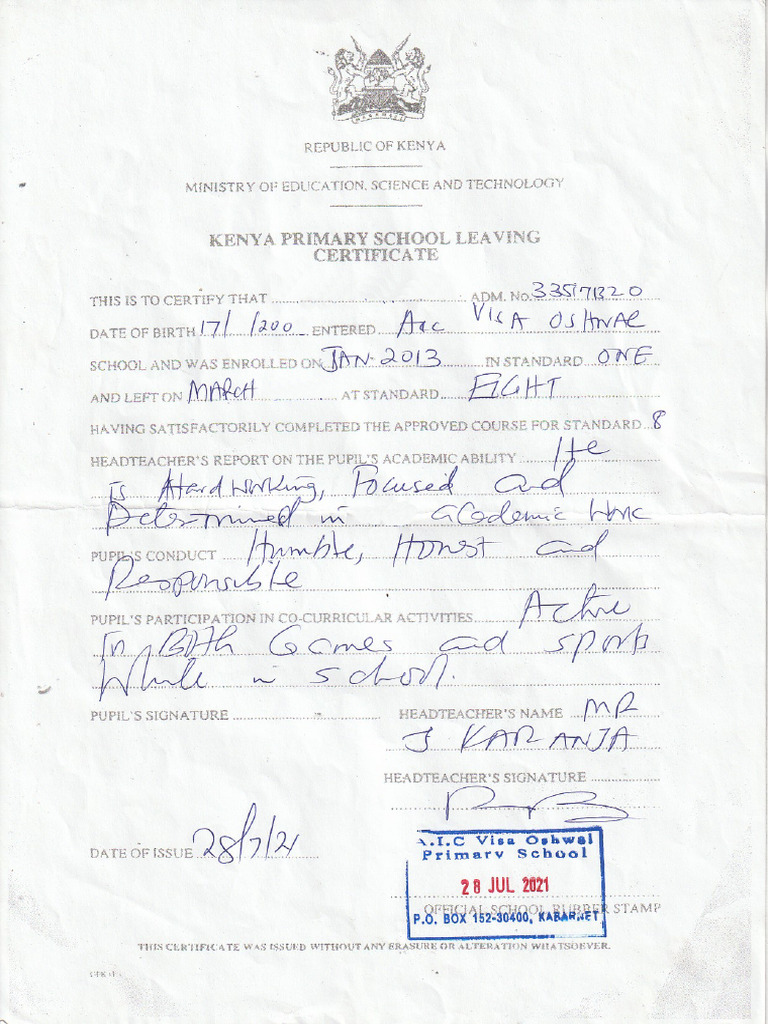 HARAMBEE
REPUBLIC OF KENYA
MINISTRY OF EDUCATION, SCIENCE AND TECHNOLOGY
KENYA PRIMARY SCHOOL LEAVING
CERTIFICATE
THIS IS TO CERTIFY THAT ADM. No.
DATE OF BIRTH 17/ /200 ENTERED Aic VISA OSHWAL
SCHOOL AND WAS ENROLLED ON JAN. 2013 IN STANDARD ONE
AND LEFT ON MARCH AT STANDARD EIGHT
HAVING SATISFACTORILY COMPLETED THE APPROVED COURSE FOR STANDARD 8
HEADTEACHER'S REPORT ON THE PUPIL'S ACADEMIC ABILITY He
is Hardworking, Focused and
Determined in academic work
PUPIL'S CONDUCT Humble, Honest and
Responsible
PUPIL'S PARTICIPATION IN CO-CURRICULAR ACTIVITIES Active
In Both Games and sports
While in school.
PUPIL'S SIGNATURE HEADTEACHER'S NAME MR
J KARANJA
HEADTEACHER'S SIGNATURE
DATE OF ISSUE 28/7/21
A.I.C Visa Oshwal
Primary School
28 JUL 2021
OFFICIAL SCHOOL RUBBER STAMP
P.O. BOX 152-30400, KABARNET
THIS CERTIFICATE WAS ISSUED WITHOUT ANY ERASURE OR ALTERATION WHATSOEVER.